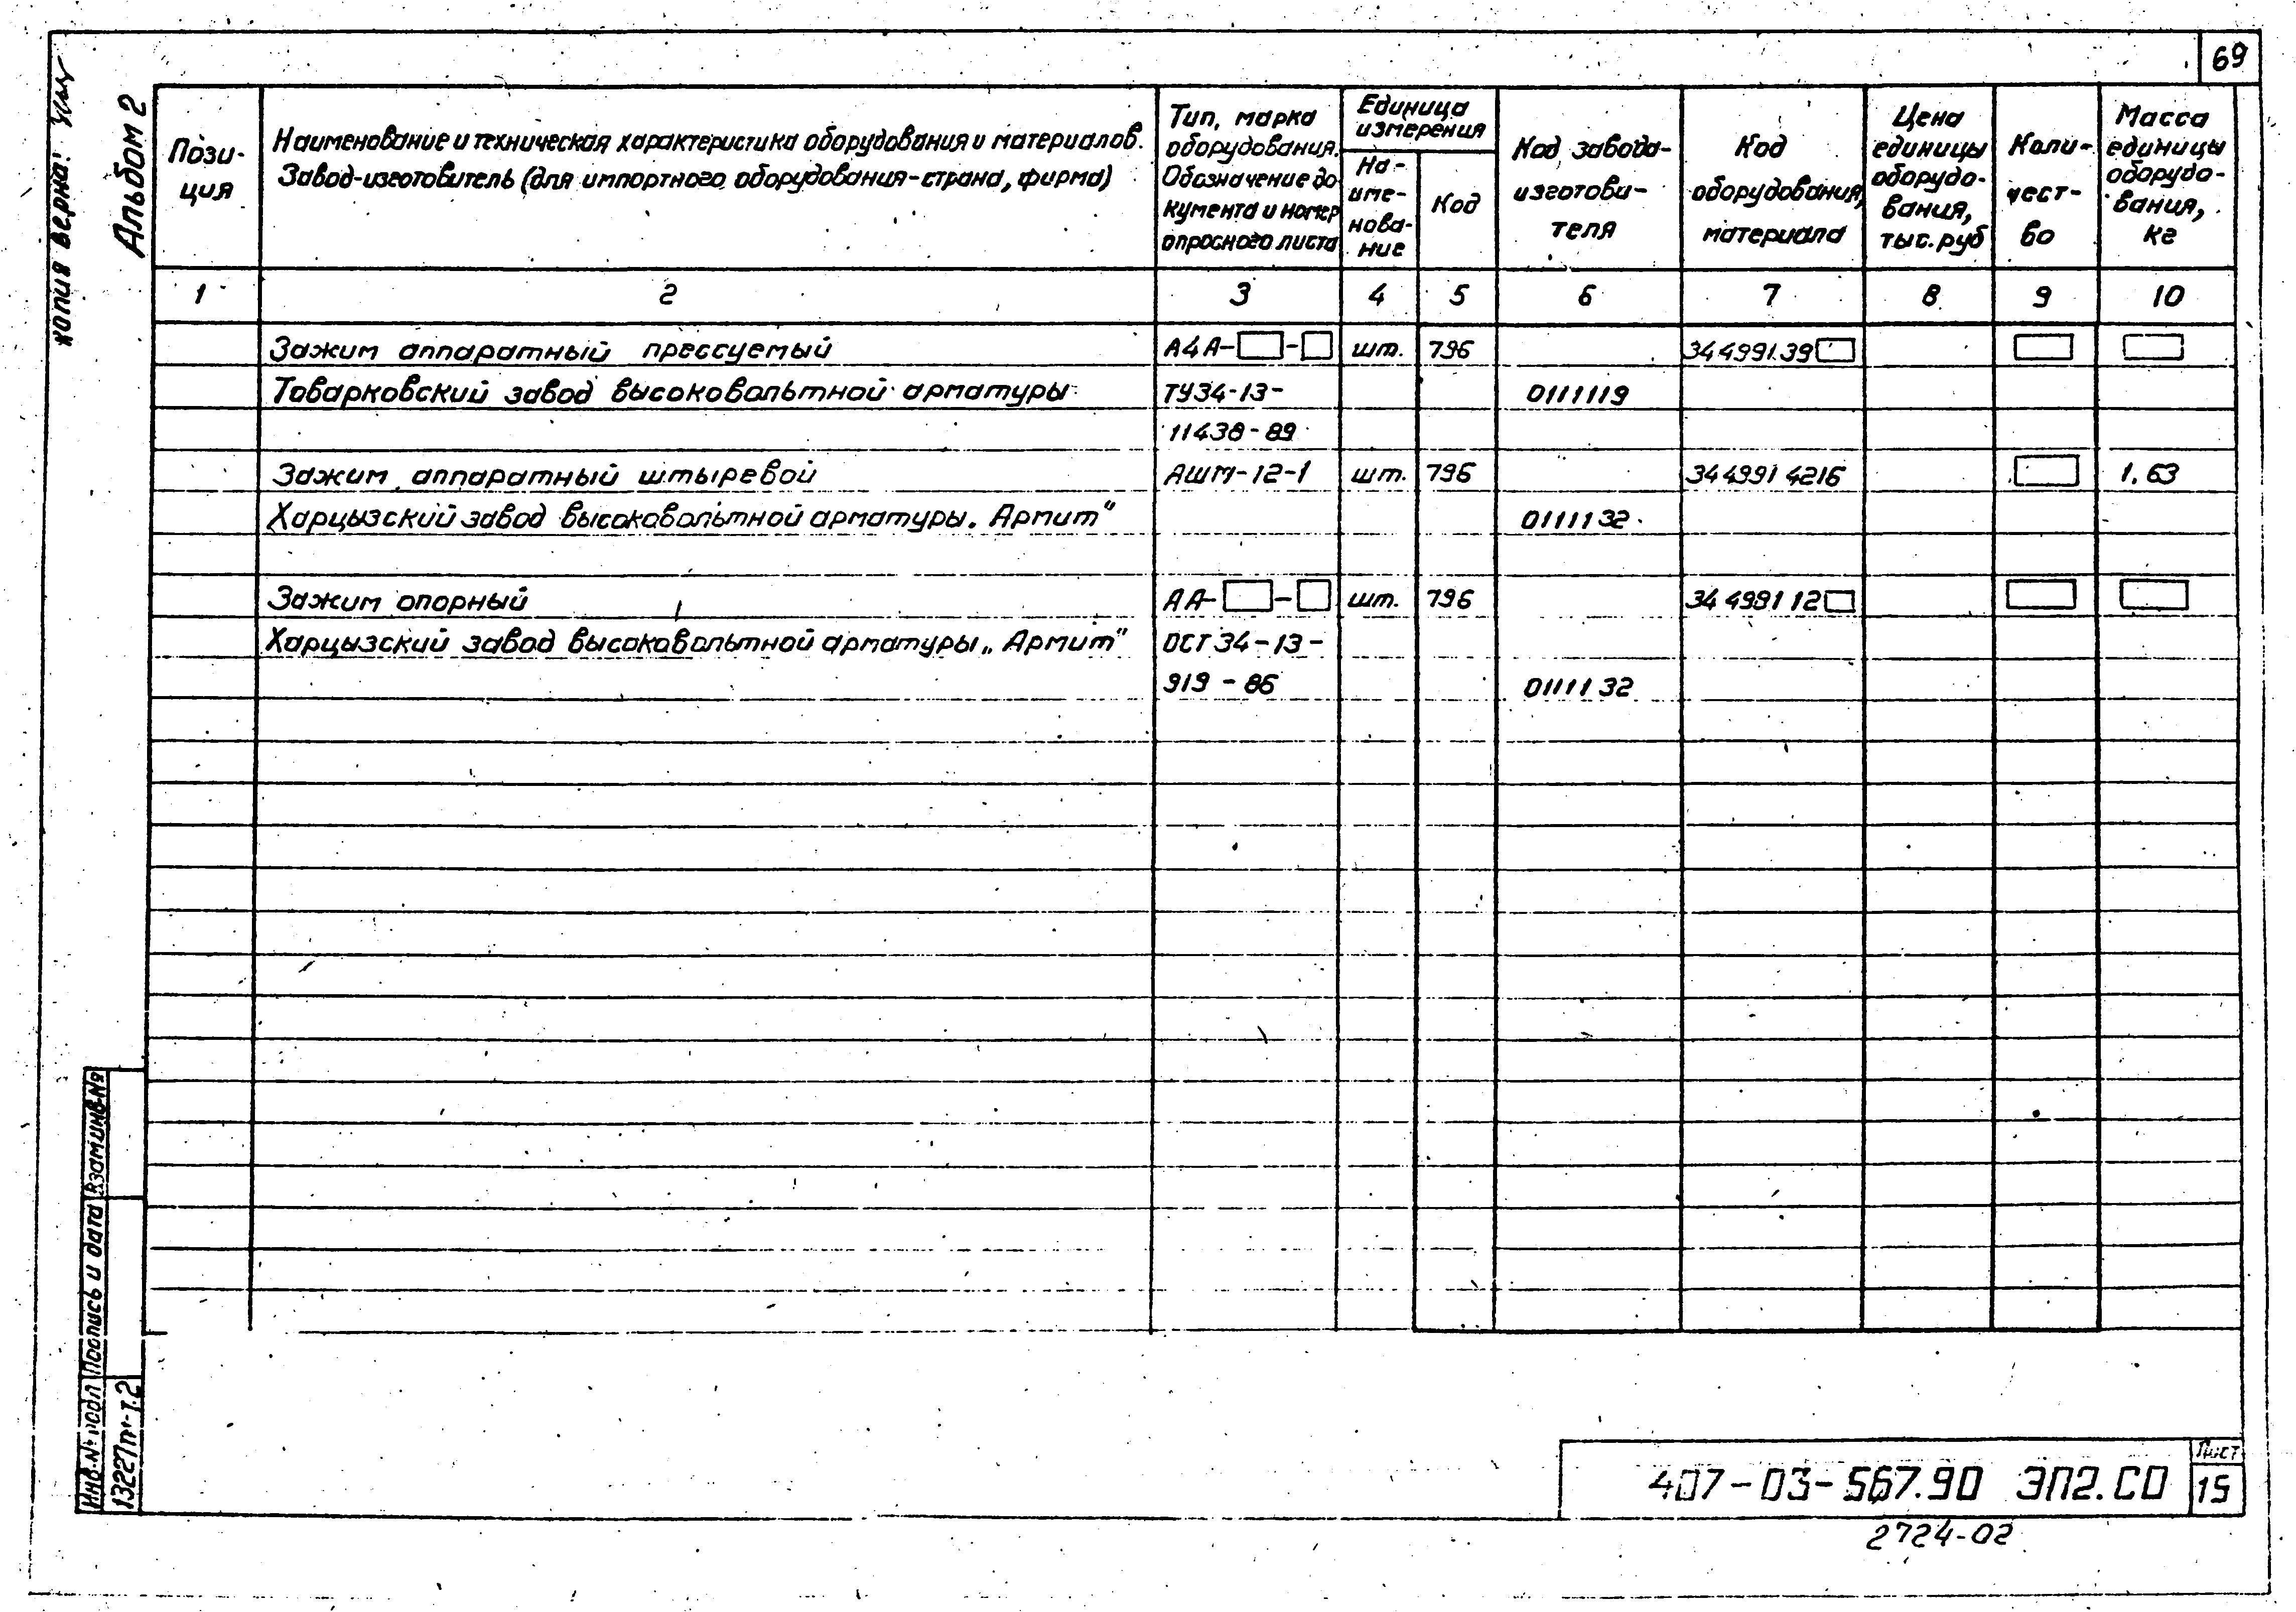 69
Копия верна:
Альбом 2
Пози-
ция
Наименование и техническая характеристика оборудования и материалов.
Завод-изготовитель (для импортного оборудования-страна, фирма)
Тип, марка
оборудования.
Обозначение до
кумента и номер
опросного листа
Единица
измерения
На-
име-
нова-
ние
Код
Код завода-
изготови-
теля
Код
оборудования,
материала
Цена
единицы
оборудо-
вания,
тыс. руб
Коли-
чест-
во
Масса
единицы
оборудо-
вания,
кг
1 2 3 4 5 6 7 8 9 10
Зажим аппаратный прессуемый А4А-□-□ шт. 796 34 4991 39□ □ □
Товарковский завод высоковольтной арматуры ТУ34-13- 0111119
11438-89
Зажим аппаратный штыревой АШМ-12-1 шт. 796 34 4991 4216 □ 1.63
Харцызский завод высоковольтной арматуры „Армит" 0111132
Зажим опорный АА-□-□ шт. 796 34 4991 12□ □ □
Харцызский завод высоковольтной арматуры „Армит" ОСТ 34-13-
919-86 0111132
Взам.инв.№
Подпись и дата
Инв.№ подл
13227тм-т.2
407-03-567.90 ЭП2.СО
Лист
15
2724-02